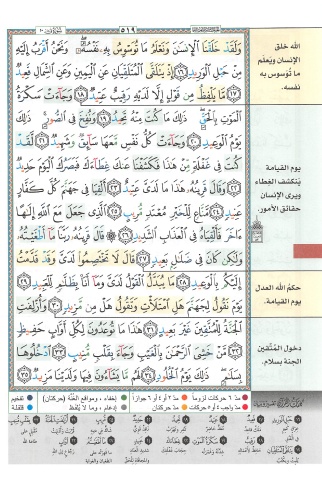 ٥١٩
وَلَقَدْ خَلَقْنَا ٱلْإِنسَٰنَ وَنَعْلَمُ مَا تُوَسْوِسُ بِهِۦ نَفْسُهُۥ وَنَحْنُ أَقْرَبُ إِلَيْهِ
مِنْ حَبْلِ ٱلْوَرِيدِ ١٦ إِذْ يَتَلَقَّى ٱلْمُتَلَقِّيَانِ عَنِ ٱلْيَمِينِ وَعَنِ ٱلشِّمَالِ قَعِيدٌ
١٧ مَّا يَلْفِظُ مِن قَوْلٍ إِلَّا لَدَيْهِ رَقِيبٌ عَتِيدٌ ١٨ وَجَآءَتْ سَكْرَةُ
ٱلْمَوْتِ بِٱلْحَقِّ ذَٰلِكَ مَا كُنتَ مِنْهُ تَحِيدُ ١٩ وَنُفِخَ فِى ٱلصُّورِ ذَٰلِكَ
يَوْمُ ٱلْوَعِيدِ ٢٠ وَجَآءَتْ كُلُّ نَفْسٍ مَّعَهَا سَآئِقٌ وَشَهِيدٌ ٢١ لَّقَدْ
كُنتَ فِى غَفْلَةٍ مِّنْ هَٰذَا فَكَشَفْنَا عَنكَ غِطَآءَكَ فَبَصَرُكَ ٱلْيَوْمَ حَدِيدٌ
٢٢ وَقَالَ قَرِينُهُۥ هَٰذَا مَا لَدَىَّ عَتِيدٌ ٢٣ أَلْقِيَا فِى جَهَنَّمَ كُلَّ كَفَّارٍ
عَنِيدٍ ٢٤ مَّنَّاعٍ لِّلْخَيْرِ مُعْتَدٍ مُّرِيبٍ ٢٥ ٱلَّذِى جَعَلَ مَعَ ٱللَّهِ إِلَٰهًا
ءَاخَرَ فَأَلْقِيَاهُ فِى ٱلْعَذَابِ ٱلشَّدِيدِ ٢٦ قَالَ قَرِينُهُۥ رَبَّنَا مَآ أَطْغَيْتُهُۥ
وَلَٰكِن كَانَ فِى ضَلَٰلٍۭ بَعِيدٍ ٢٧ قَالَ لَا تَخْتَصِمُوا۟ لَدَىَّ وَقَدْ قَدَّمْتُ
إِلَيْكُم بِٱلْوَعِيدِ ٢٨ مَا يُبَدَّلُ ٱلْقَوْلُ لَدَىَّ وَمَآ أَنَا۠ بِظَلَّٰمٍ لِّلْعَبِيدِ ٢٩
يَوْمَ نَقُولُ لِجَهَنَّمَ هَلِ ٱمْتَلَأْتِ وَتَقُولُ هَلْ مِن مَّزِيدٍ ٣٠ وَأُزْلِفَتِ
ٱلْجَنَّةُ لِلْمُتَّقِينَ غَيْرَ بَعِيدٍ ٣١ هَٰذَا مَا تُوعَدُونَ لِكُلِّ أَوَّابٍ حَفِيظٍ
٣٢ مَّنْ خَشِىَ ٱلرَّحْمَٰنَ بِٱلْغَيْبِ وَجَآءَ بِقَلْبٍ مُّنِيبٍ ٣٣ ٱدْخُلُوهَا
بِسَلَٰمٍ ذَٰلِكَ يَوْمُ ٱلْخُلُودِ ٣٤ لَهُم مَّا يَشَآءُونَ فِيهَا وَلَدَيْنَا مَزِيدٌ ٣٥
الله خلق
الإنسان ويعلم
ما توسوس به
نفسه.
يوم القيامة
ينكشف الغطاء
ويرى الإنسان
حقائق الأمور.
حكم الله العدل
يوم القيامة.
دخول المتقين
الجنة بسلام.
مد ٦ حركات لزوماً
مد ٢ أو ٤ أو ٦ جوازاً
إخفاء، ومواقع الغنّة (حركتان)
تفخيم
مد واجب ٤ أو ٥ حركات
مد حركتان
إدغام، وما لا يُلفظ
قلقلة